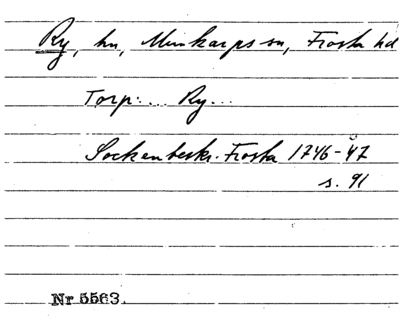 Ry, hn, Munkarps sn, Frosta hd
Torp: ... Ry...
Sockenbeskr. Frosta 1746-47
s. 91
Nr 5563.